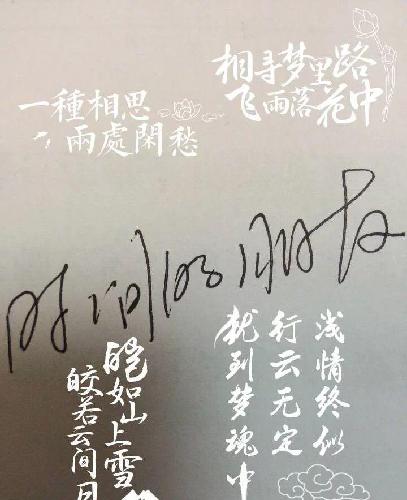 相寻梦里路
飞雨落花中
一種相思
兩處閑愁
时间的朋友
浅情终似
行云无定
犹到梦魂中
皑如山上雪
皎若云间月